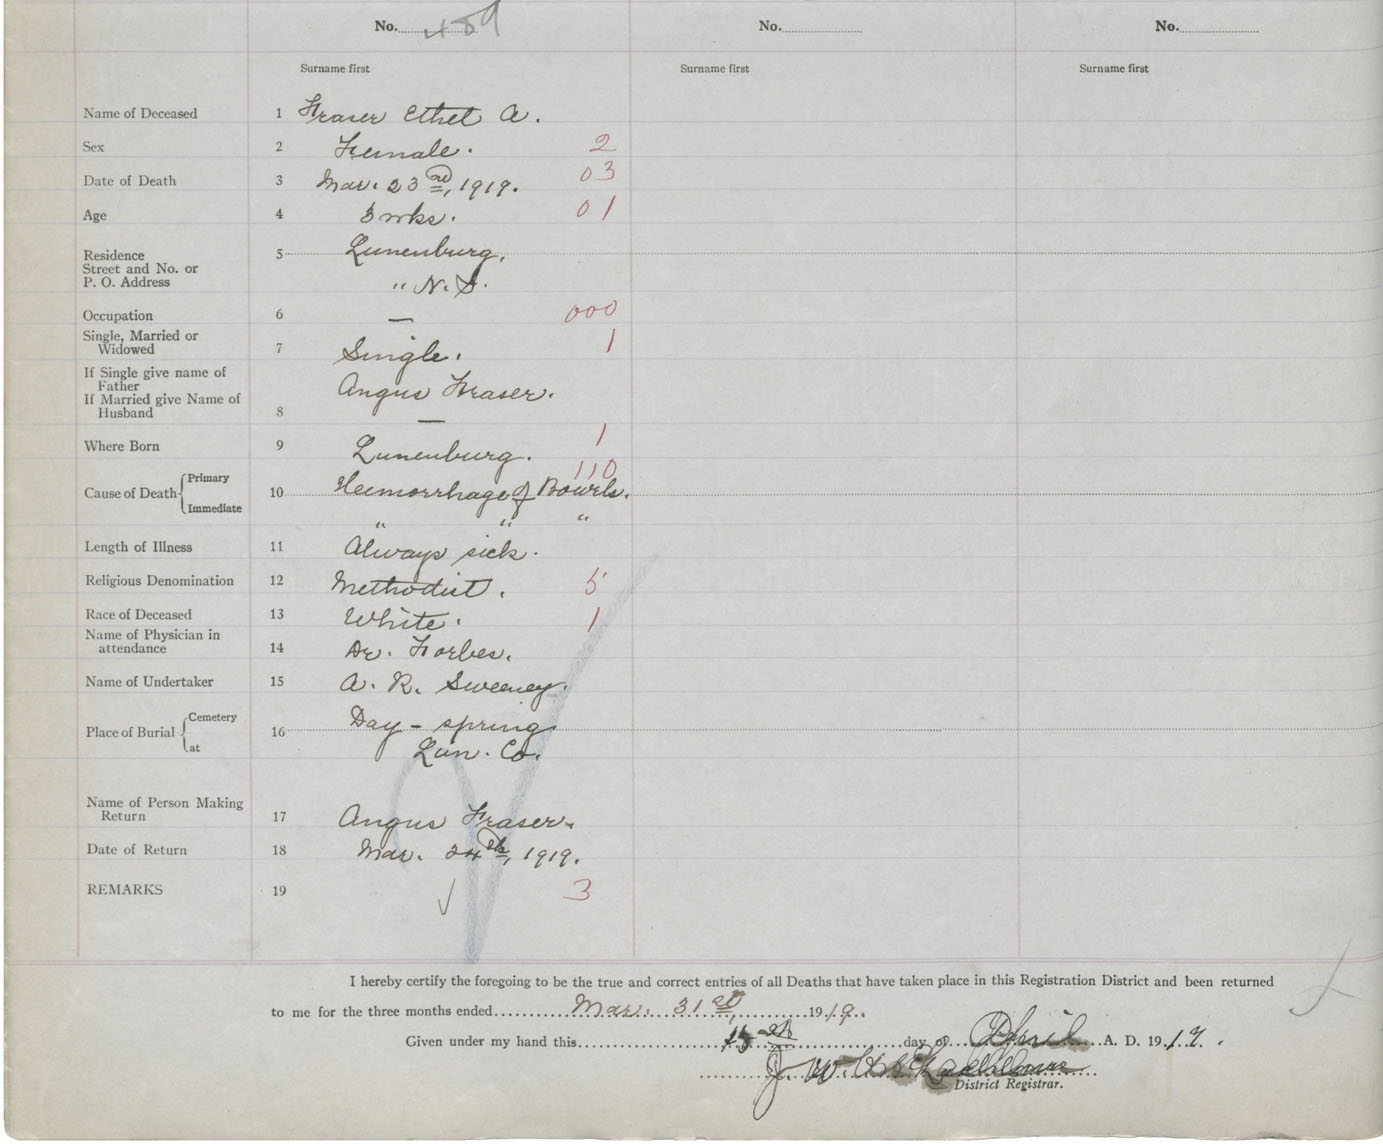 No. 489 No. No.
Surname first Surname first Surname first
Name of Deceased 1 Fraser Ethel A.
Sex 2 Female. 2
Date of Death 3 Mar. 23rd, 1919. 03
Age 4 3 wks. 01
Residence 5 Lunenburg,
Street and No. or
P. O. Address " N. S.
Occupation 6 — 000
Single, Married or
Widowed 7 Single. 1
If Single give name of
Father Angus Fraser.
If Married give Name of
Husband 8 —
Where Born 9 Lunenburg. 1
110
Cause of Death Primary 10 Heemorrhage of Bowels.
Immediate " " "
Length of Illness 11 Always sick.
Religious Denomination 12 Methodist. 5
Race of Deceased 13 White. 1
Name of Physician in
attendance 14 Dr. Forbes.
Name of Undertaker 15 A. R. Sweeney.
Place of Burial Cemetery 16 Day - spring
at Lun. Co.
Name of Person Making
Return 17 Angus Fraser.
Date of Return 18 Mar. 24th, 1919.
REMARKS 19 3
I hereby certify the foregoing to be the true and correct entries of all Deaths that have taken place in this Registration District and been returned
to me for the three months ended Mar. 31st, 1919.
Given under my hand this 15th day of April A. D. 1919.
J. W.
District Registrar.